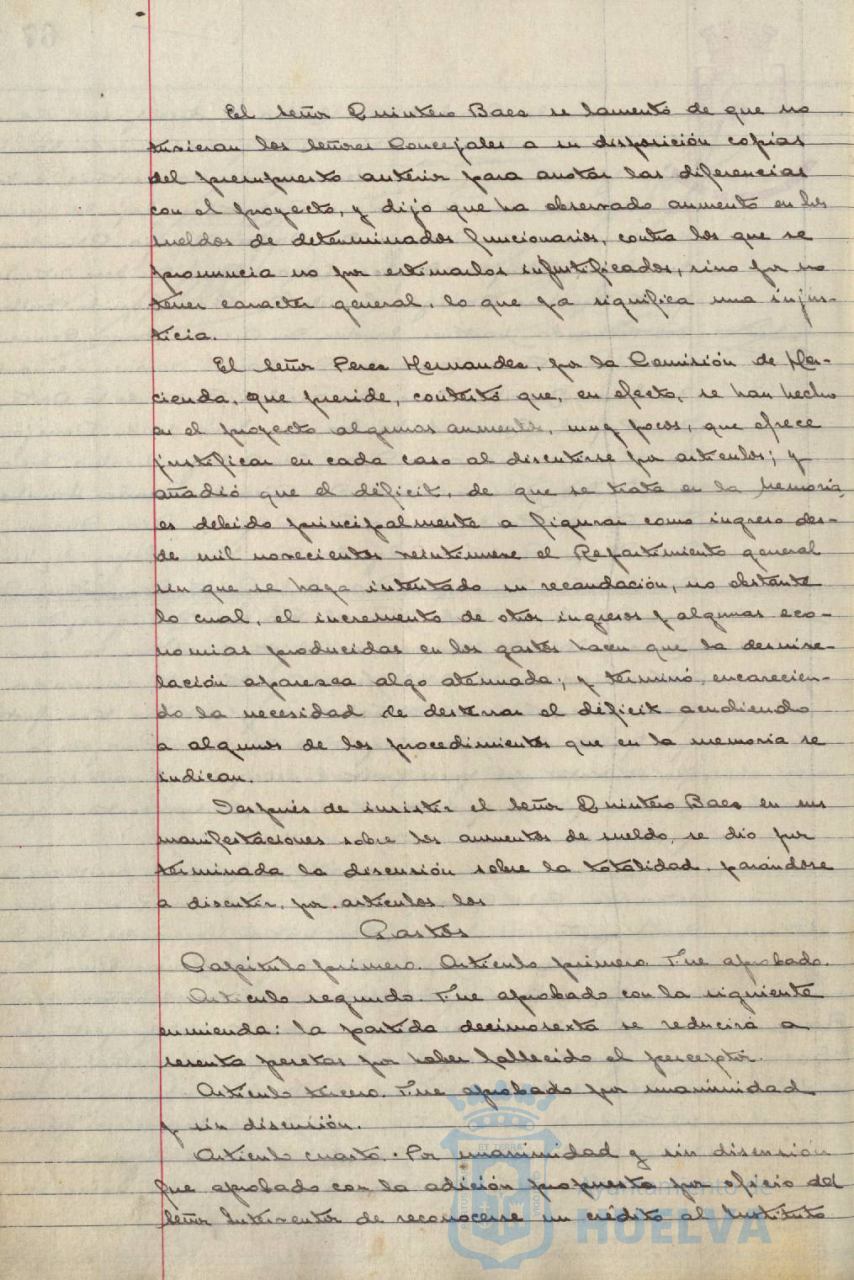 El señor Quintero Baez se lamentó de que no
tuvieran los señores Concejales a su disposición copias
del presupuesto anterior para anotar las diferencias
con el proyecto, y dijo que ha observado aumento en los
sueldos de determinados funcionarios, contra los que se
pronuncia no por estimarlos injustificados, sino por no
tener caracter general, lo que ya significa una injus-
ticia.
El señor Perez Hernandez, por la Comisión de Ha-
cienda, que preside, contestó que, en efecto, se han hecho
en el proyecto algunos aumentos, muy pocos, que ofrece
justificar en cada caso al discutirse por artículos; y
añadió que el déficit, de que se trata en la Memoria,
es debido principalmente a figurar como ingreso des-
de mil novecientos veintinueve el Repartimiento general
sin que se haya intentado su recaudación, no obstante
lo cual, el incremento de otros ingresos y algunas eco-
nomias producidas en los gastos hacen que la desnive-
lación aparezca algo atenuada; y terminó encarecien-
do la necesidad de desterrar el déficit acudiendo
a algunos de los procedimientos que en la memoria se
indican.
Después de insistir el señor Quintero Baez en sus
manifestaciones sobre los aumentos de sueldo, se dio por
terminada la discusión sobre la totalidad, pasándose
a discutir, por artículos, los
Gastos
Capítulo primero. Artículo primero. Fue aprobado.
Artículo segundo. Fue aprobado con la siguiente
enmienda: la partida decimosexta se reducirá a
sesenta pesetas por haber fallecido el perceptor.
Artículo tercero. Fue aprobado por unanimidad
y sin discusión.
Artículo cuarto. Por unanimidad y sin discusión
fue aprobado con la adición propuesta por oficio del
señor Interventor de reconocerse un crédito al Instituto
Ayuntamiento de
HUELVA